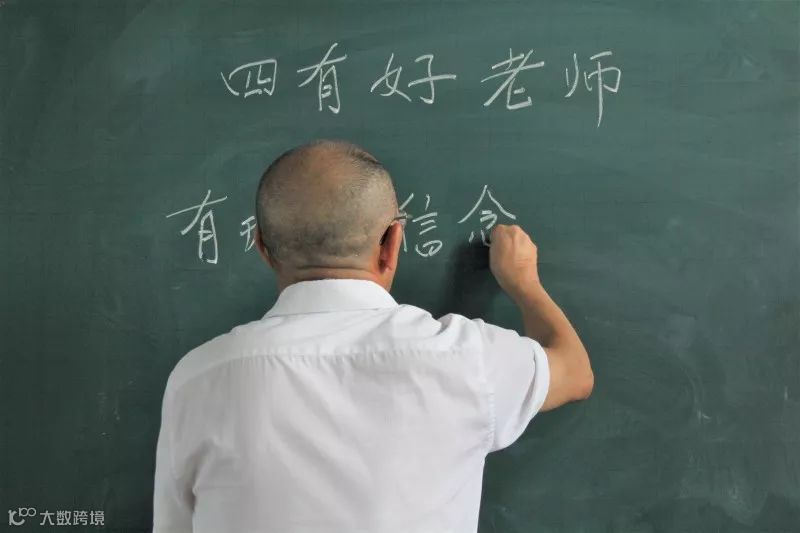 四有好老师
有 信念
大数跨境